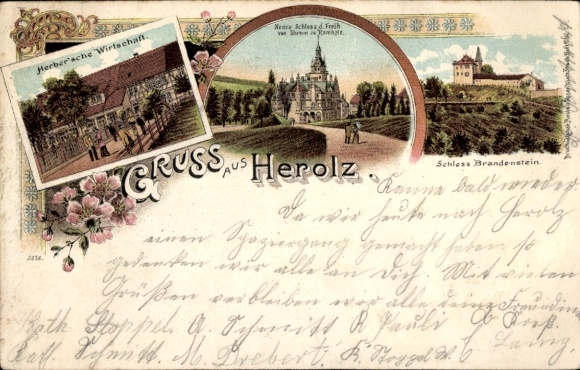 Herber'sche Wirtschaft.
Neues Schloss d. Freih.
von Stumm in Ramholz.
Schloss Brandenstein.
GRUSS AUS HEROLZ.
Komme bald wieder
Da wir heute nach Herolz
einen Spaziergang gemacht haben so
gedenken wir alle an Dich. Mit vielen
Grüßen verbleiben wir alle deine Freundinnen
2858.
Kath. Stoppel. A. Schmitt R Pauli
Kath. Schmitt. M. K. Stoppel